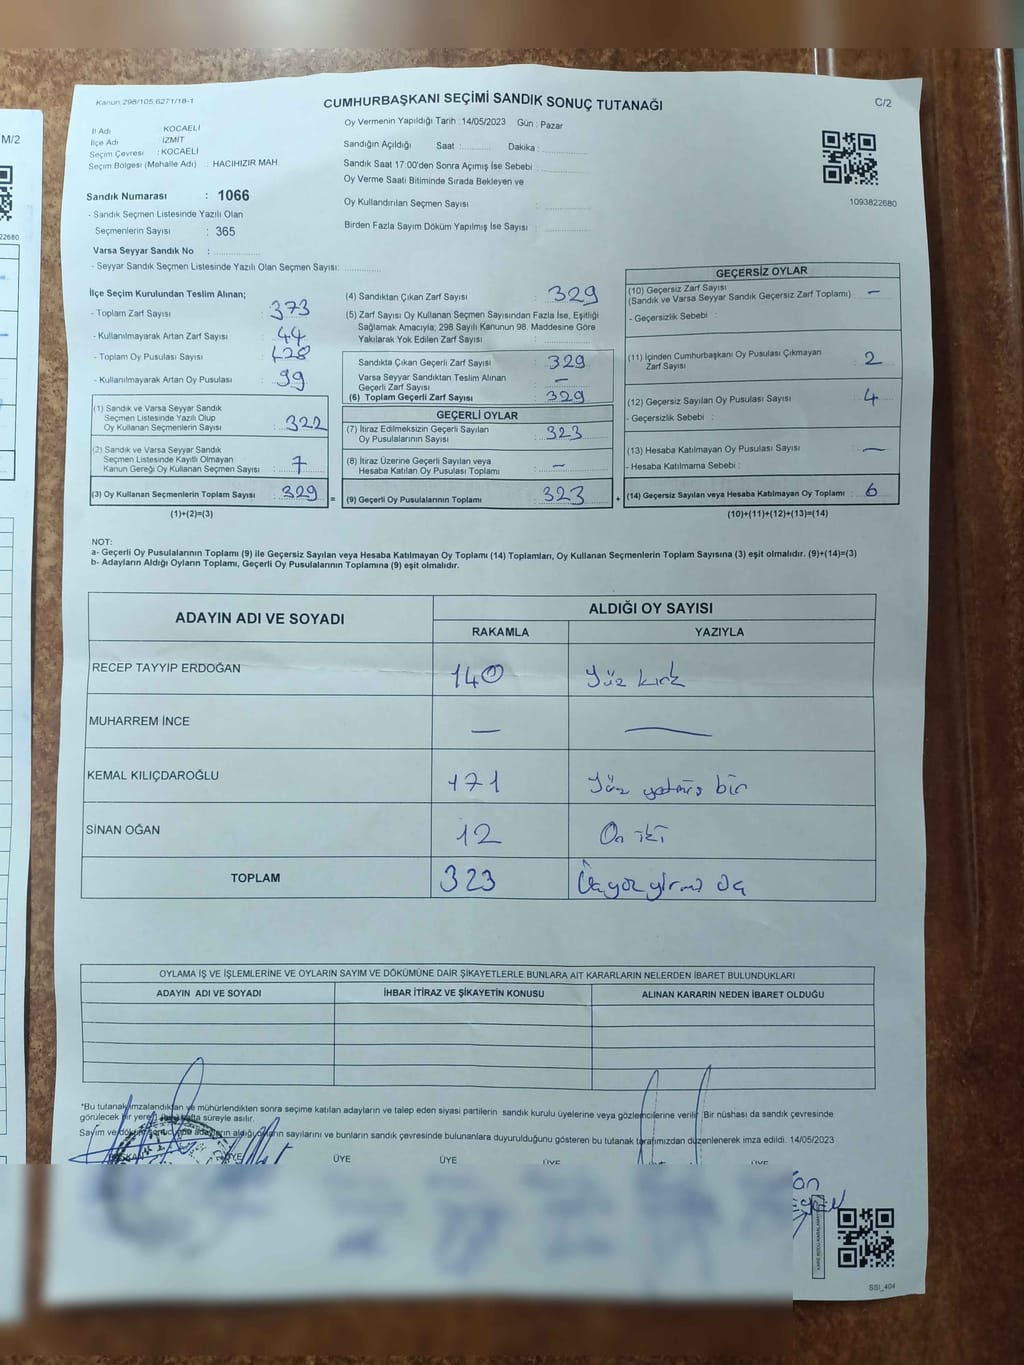 M/2
22680
Kanun:298/105;6271/18-1
CUMHURBAŞKANI SEÇİMİ SANDIK SONUÇ TUTANAĞI
C/2
İl Adı : KOCAELİ
İlçe Adı : İZMİT
Seçim Çevresi : KOCAELİ
Seçim Bölgesi (Mahalle Adı) : HACIHIZIR MAH.
Oy Vermenin Yapıldığı Tarih : 14/05/2023 Gün : Pazar
Sandığın Açıldığı Saat :.......... Dakika :
Sandık Saat 17:00'den Sonra Açımış İse Sebebi :
Oy Verme Saati Bitiminde Sırada Bekleyen ve
Oy Kullandırılan Seçmen Sayısı :
Birden Fazla Sayım Döküm Yapılmış İse Sayısı :
1093822680
Sandık Numarası : 1066
- Sandık Seçmen Listesinde Yazılı Olan
Seçmenlerin Sayısı : 365
Varsa Seyyar Sandık No :
- Seyyar Sandık Seçmen Listesinde Yazılı Olan Seçmen Sayısı:
İlçe Seçim Kurulundan Teslim Alınan;
- Toplam Zarf Sayısı : 373
- Kullanılmayarak Artan Zarf Sayısı : 44
- Toplam Oy Pusulası Sayısı : 428
- Kullanılmayarak Artan Oy Pusulası : 99
(1) Sandık ve Varsa Seyyar Sandık
Seçmen Listesinde Yazılı Olup
Oy Kullanan Seçmenlerin Sayısı : 322
(2) Sandık ve Varsa Seyyar Sandık
Seçmen Listesinde Kayıtlı Olmayan
Kanun Gereği Oy Kullanan Seçmen Sayısı : 7
(3) Oy Kullanan Seçmenlerin Toplam Sayısı : 329 =
(1)+(2)=(3)
(4) Sandıktan Çıkan Zarf Sayısı : 329
(5) Zarf Sayısı Oy Kullanan Seçmen Sayısından Fazla İse, Eşitliği
Sağlamak Amacıyla; 298 Sayılı Kanunun 98. Maddesine Göre
Yakılarak Yok Edilen Zarf Sayısı :
Sandıkta Çıkan Geçerli Zarf Sayısı : 329
Varsa Seyyar Sandıktan Teslim Alınan
Geçerli Zarf Sayısı : —
(6) Toplam Geçerli Zarf Sayısı : 329
GEÇERLİ OYLAR
(7) İtiraz Edilmeksizin Geçerli Sayılan
Oy Pusulalarının Sayısı : 323
(8) İtiraz Üzerine Geçerli Sayılan veya
Hesaba Katılan Oy Pusulası Toplamı : —
(9) Geçerli Oy Pusulalarının Toplamı : 323 +
GEÇERSİZ OYLAR
(10) Geçersiz Zarf Sayısı
(Sandık ve Varsa Seyyar Sandık Geçersiz Zarf Toplamı) : —
- Geçersizlik Sebebi :
(11) İçinden Cumhurbaşkanı Oy Pusulası Çıkmayan
Zarf Sayısı : 2
(12) Geçersiz Sayılan Oy Pusulası Sayısı : 4
- Geçersizlik Sebebi :
(13) Hesaba Katılmayan Oy Pusulası Sayısı : —
- Hesaba Katılmama Sebebi :
(14) Geçersiz Sayılan veya Hesaba Katılmayan Oy Toplamı : 6
(10)+(11)+(12)+(13)=(14)
NOT:
a- Geçerli Oy Pusulalarının Toplamı (9) ile Geçersiz Sayılan veya Hesaba Katılmayan Oy Toplamı (14) Toplamları, Oy Kullanan Seçmenlerin Toplam Sayısına (3) eşit olmalıdır. (9)+(14)=(3)
b- Adayların Aldığı Oyların Toplamı, Geçerli Oy Pusulalarının Toplamına (9) eşit olmalıdır.
ADAYIN ADI VE SOYADI
ALDIĞI OY SAYISI
RAKAMLA YAZIYLA
RECEP TAYYİP ERDOĞAN 140 Yüz kırk
MUHARREM İNCE — —
KEMAL KILIÇDAROĞLU 171 Yüz yetmiş bir
SİNAN OĞAN 12 On iki
TOPLAM 323 Üçyüz yirmi üç
OYLAMA İŞ VE İŞLEMLERİNE VE OYLARIN SAYIM VE DÖKÜMÜNE DAİR ŞİKAYETLERLE BUNLARA AİT KARARLARIN NELERDEN İBARET BULUNDUKLARI
ADAYIN ADI VE SOYADI İHBAR İTİRAZ VE ŞİKAYETİN KONUSU ALINAN KARARIN NEDEN İBARET OLDUĞU
*Bu tutanak imzalandıktan ve mühürlendikten sonra seçime katılan adayların ve talep eden siyasi partilerin sandık kurulu üyelerine veya gözlemcilerine verilir. Bir nüshası da sandık çevresinde
görülecek bir yere, hafta süreyle asılır.
Sayım ve döküm adayların aldığı oyların sayılarını ve bunların sandık çevresinde bulunanlara duyurulduğunu gösteren bu tutanak tarafımızdan düzenlenerek imza edildi. 14/05/2023
BAŞKAN ÜYE ÜYE ÜYE ÜYE ÜYE
SSI_404